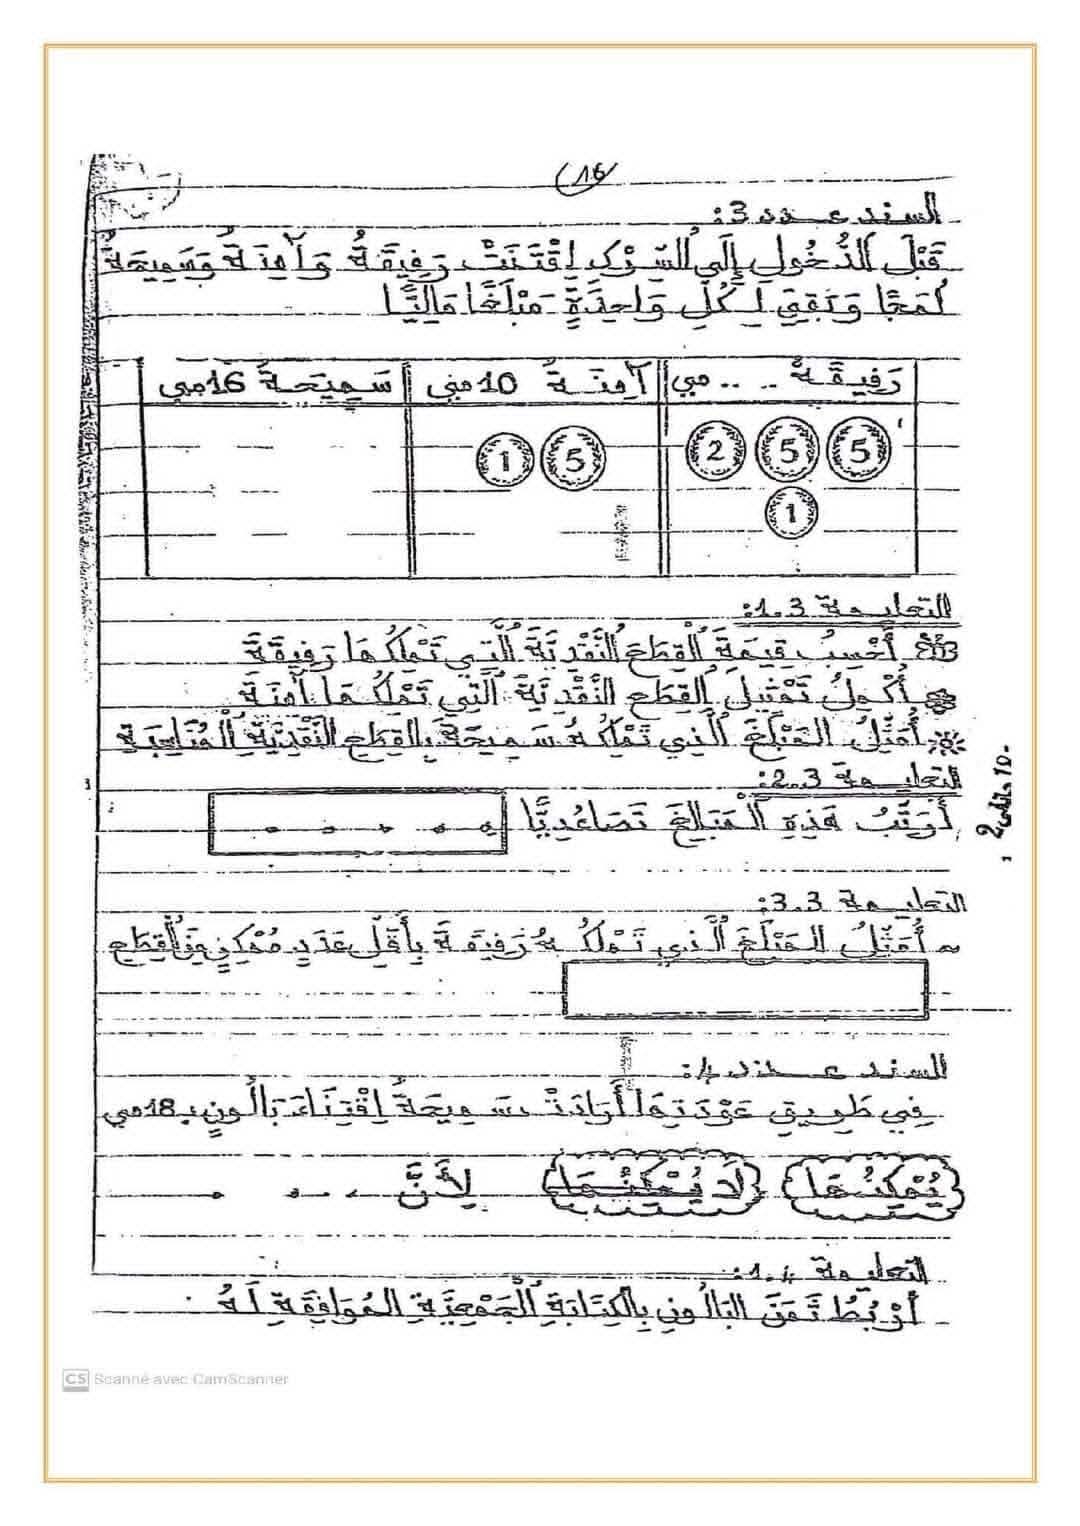 16
السند عــدد 3:
قَبْلَ الدُّخُولِ إِلَى السّرْكِ اِقْتَنَتْ رَفِيقَةُ وَآمِنَةُ وَسَمِيحَةُ
لُمَجًا وَبَقِيَ لِكُلِّ وَاحِدَةٍ مَبْلَغًا مَالِيًّا
رَفِيقَةُ .. .. مي
آمِنَةُ 10 مي
سَمِيحَةُ 16 مي
5 5 2
1
5 1
التعليمة 1.3:
أَحْسِبُ قِيمَةَ الْقِطَعِ النَّقْدِيَّةِ الَّتِي تَمْلِكُهَا رَفِيقَةُ
أُكْمِلُ تَمْثِيلَ الْقِطَعِ النَّقْدِيَّةِ الَّتِي تَمْلِكُهَا آمِنَةُ
أُمَثِّلُ المَبْلَغَ الَّذِي تَمْلِكُهُ سَمِيحَةُ بِالقِطَعِ النَّقْدِيَّةِ الْمُنَاسِبَةِ
التعليمة 2.3:
أُرَتِّبُ هَذِهِ الْمَبَالِغَ تَصَاعُدِيًّا
التعليمة 3.3:
أُمَثِّلُ المَبْلَغَ الَّذِي تَمْلِكُهُ رَفِيقَةُ بِأَقَلِّ عَدَدٍ مُمْكِنٍ مِنَ الْقِطَعِ
السند عــدد 4:
فِي طَرِيقِ عَوْدَتِهَا أَرَادَتْ سَمِيحَةُ اِقْتِنَاءَ بَالُونٍ بـ 18 مي
يُمْكِنُهَا لَا يُمْكِنُهَا لِأَنَّ
التعليمة 1.4:
أَرْبُطُ ثَمَنَ البَالُونِ بِالْكِتَابَةِ الْجَمْعِيَّةِ المُوَافِقَةِ لَهُ
CS Scanné avec CamScanner